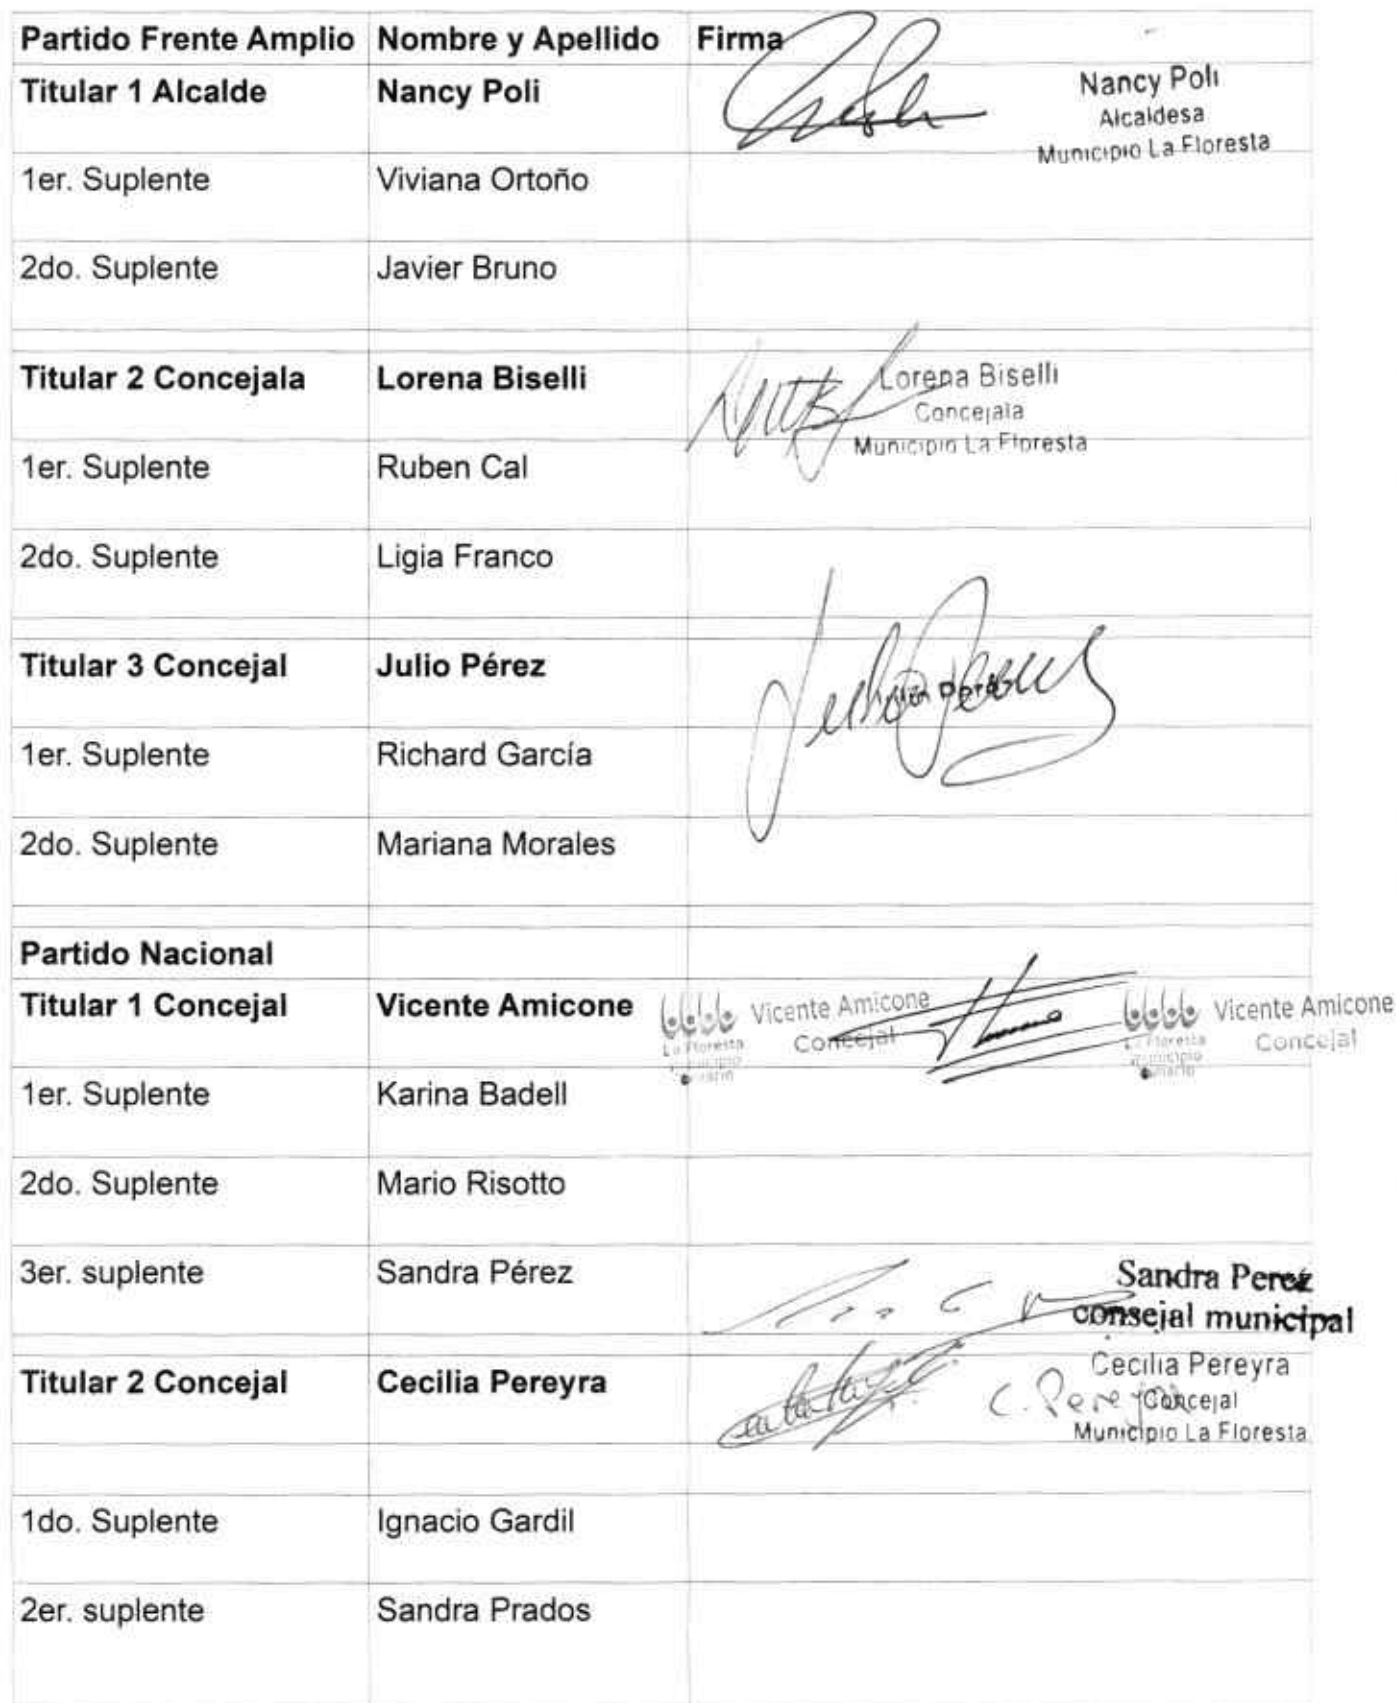 Partido Frente Amplio Nombre y Apellido Firma
Titular 1 Alcalde Nancy Poli
Nancy Poli
Alcaldesa
Municipio La Floresta
1er. Suplente Viviana Ortoño
2do. Suplente Javier Bruno
Titular 2 Concejala Lorena Biselli
Lorena Biselli
Concejala
Municipio La Floresta
1er. Suplente Ruben Cal
2do. Suplente Ligia Franco
Titular 3 Concejal Julio Pérez
1er. Suplente Richard García
2do. Suplente Mariana Morales
Partido Nacional
Titular 1 Concejal Vicente Amicone
Vicente Amicone
Concejal
La Floresta
municipio
Vicente Amicone
Concejal
La Floresta
municipio
1er. Suplente Karina Badell
2do. Suplente Mario Risotto
3er. suplente Sandra Pérez
Sandra Perez
consejal municipal
Titular 2 Concejal Cecilia Pereyra
Cecilia Pereyra
C. Pereyra
Concejal
Municipio La Floresta
1do. Suplente Ignacio Gardil
2er. suplente Sandra Prados